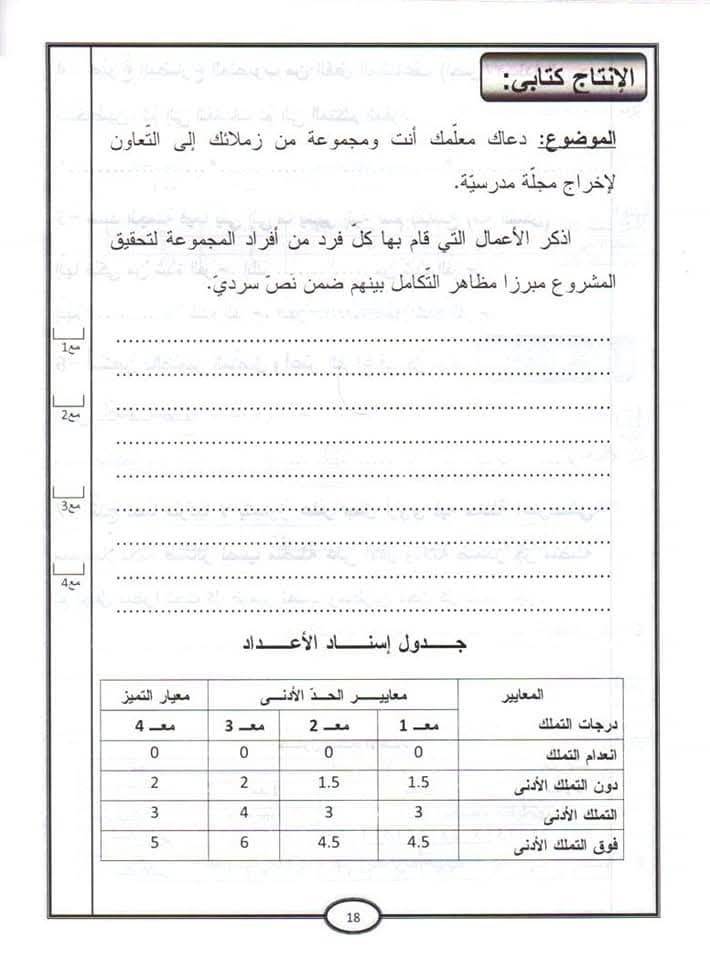 الإنتاج كتابي:
الموضوع: دعاك معلّمك أنت ومجموعة من زملائك إلى التّعاون
لإخراج مجلّة مدرسيّة.
اذكر الأعمال التي قام بها كلّ فرد من أفراد المجموعة لتحقيق
المشروع مبرزا مظاهر التّكامل بينهم ضمن نصّ سرديّ.
مع1
مع2
مع3
مع4
جـــدول إسنـــاد الأعـــداد
المعايير معاييـــر الحـــدّ الأدنـــى معيار التميز
درجات التملك معـ 1 معـ 2 معـ 3 معـ 4
انعدام التملك 0 0 0 0
دون التملك الأدنى 1.5 1.5 2 2
التملك الأدنى 3 3 4 3
فوق التملك الأدنى 4.5 4.5 6 5
18